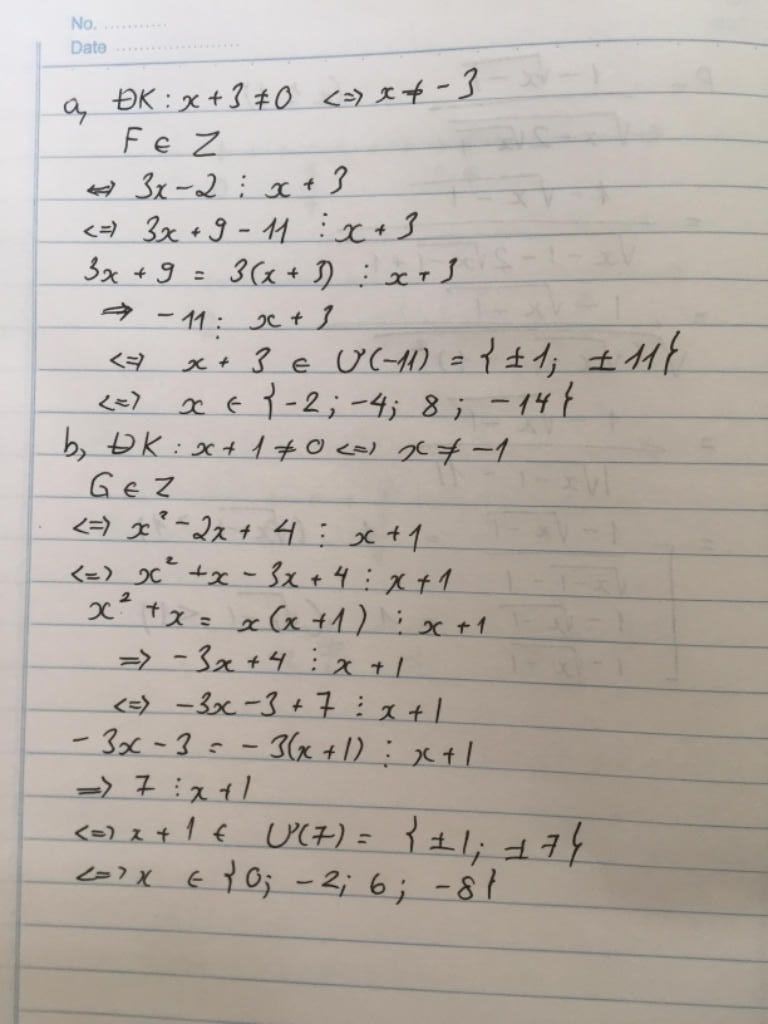 No. ............
Date ........................
a, ĐK : x + 3 ≠ 0 <=> x ≠ - 3
F ∈ Z
<=> 3x - 2 ⋮ x + 3
<=> 3x + 9 - 11 ⋮ x + 3
3x + 9 = 3(x + 3) ⋮ x + 3
=> - 11 ⋮ x + 3
<=> x + 3 ∈ Ư(-11) = {±1; ±11}
<=> x ∈ {-2; -4; 8; -14}
b, ĐK : x + 1 ≠ 0 <=> x ≠ -1
G ∈ Z
<=> x² - 2x + 4 ⋮ x + 1
<=> x² + x - 3x + 4 ⋮ x + 1
x² + x = x(x + 1) ⋮ x + 1
=> -3x + 4 ⋮ x + 1
<=> -3x - 3 + 7 ⋮ x + 1
- 3x - 3 = - 3(x + 1) ⋮ x + 1
=> 7 ⋮ x + 1
<=> x + 1 ∈ Ư(7) = {±1; ±7}
<=> x ∈ {0; -2; 6; -8}